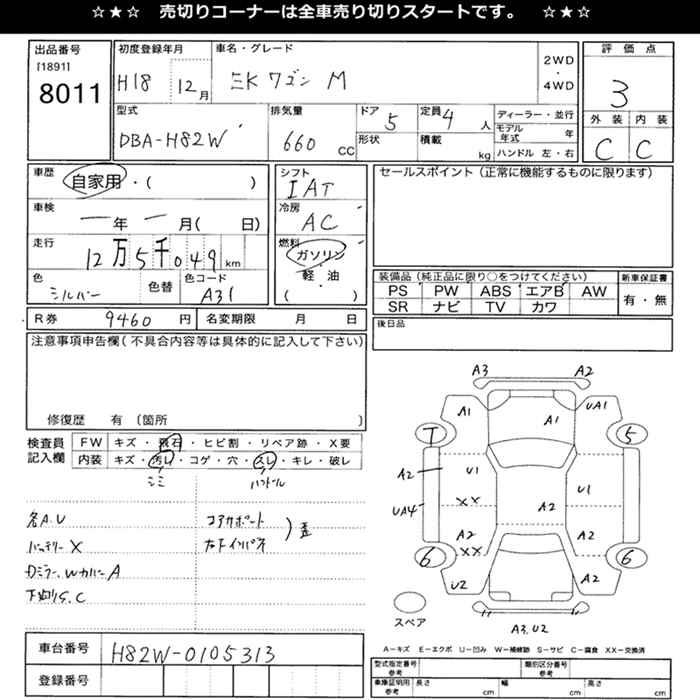 ☆★☆ 売切りコーナーは全車売り切りスタートです。 ☆★☆
出品番号
[1891]
8011
初度登録年月
H18 12月
車名・グレード
EKワゴン M
2WD
・
4WD
評価点
3
型式
DBA-H82W
排気量
660 CC
ドア
5
形状
定員 4 人
積載 kg
ディーラー・並行
モデル年式 年
ハンドル 左・右
外装 内装
C C
車歴
自家用・( )
車検
一年一月( 日)
走行
12万5千049km
色
シルバー
色替
色コード
A31
シフト
IAT
冷房
AC
燃料
ガソリン
軽・油
( )
セールスポイント(正常に機能するものに限ります)
装備品(純正品に限り○をつけてください)
PS PW ABS エアB AW
SR ナビ TV カワ
新車保証書
有・無
R券 9460 円
名変期限 月 日
後日品
注意事項申告欄(不具合内容等は具体的に記入して下さい)
修復歴 有 〔箇所 〕
検査員記入欄
FW キズ・飛石・ヒビ割・リペア跡・X要
内装 キズ・汚レ・コゲ・穴・スレ・キレ・破レ
シミ ハンドル
各A.U
バッテリーX
Dミラー、WカバーA
下廻りS.C
コアサポート
右下インパネ
) 歪
A3 A2
A1 A1 UA1
T 5
A2 U1 U1
UA4 XX A2
A2 A2
XX
6 6
U2 A2
スペア
A3.U2
A－キズ E－エクボ U－凹み W－補修跡 S－サビ C－腐食 XX－交換済
車台番号 H82W-0105313
登録番号
型式指定番号 参考
類別区分番号 参考
車庫証明用 参考
長さ cm 幅 cm 高さ cm